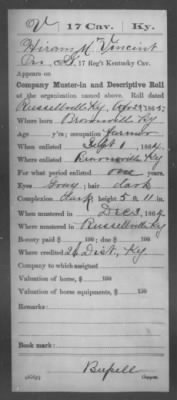 V | 17 Cav. | Ky.
Hiram M. Vincent
Co. G, 17 Reg't Kentucky Cav.
Appears on
Company Muster-in and Descriptive Roll
of the organization named above. Roll dated
Russellville Ky, 1865.
Where born Brownsville Ky
Age y'rs; occupation Farmer
When enlisted Sept 1, 1864.
Where enlisted Ky
For what period enlisted one years.
Eyes Gray; hair dark
Complexion dark; height 5 ft. 11 in.
When mustered in Dec 3, 1864
Where mustered in Russellville Ky
Bounty paid $ 100; due $ 100
Where credited 2d Dist, Ky
Company to which assigned
Valuation of horse, $ 100
Valuation of horse equipments, $ 100
Remarks:
Book mark:
Bupell
Copyist.